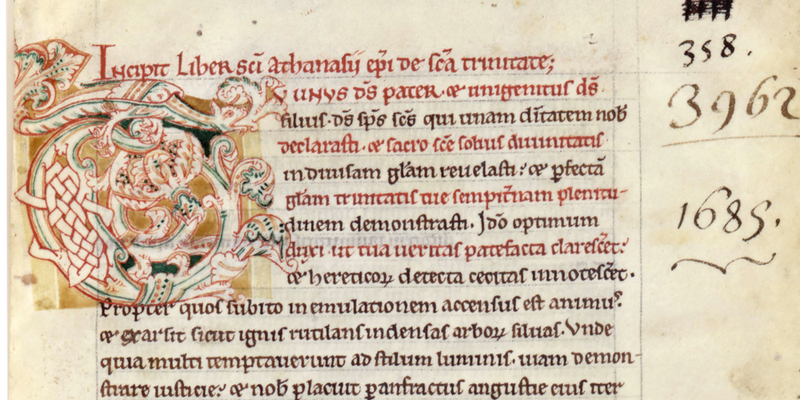 Incipit Liber sc̄i Athanasii ep̄i de sc̄a trinitate;
Tu unus ds̄ pater. & unigenitus ds̄
filius. ds̄ sps̄ sc̄s qui unam dīitatem nob̄
declarasti. & sacro sc̄e solius diuinitatis
indiuisam gl̄am reuelasti: & ꝑfectā
gl̄am trinitatis tue sempit̄nam plenitu-
dinem demonstrasti. Idō optimum
duxi. ut tua ueritas patefacta claresc̄et:
& hereticoꝝ detecta cecitas innotesc̄et.
Propter quos subito in emulationem accensus est animus.
& exarsit sicut ignis rutilans in densas arboꝝ siluas. Vnde
quia multi temptauerunt ad stilum luminis. uiam demon-
strare iusticie: & nob̄ placuit ꝑ anfractus angustie eius iter
358.
3962
1685.